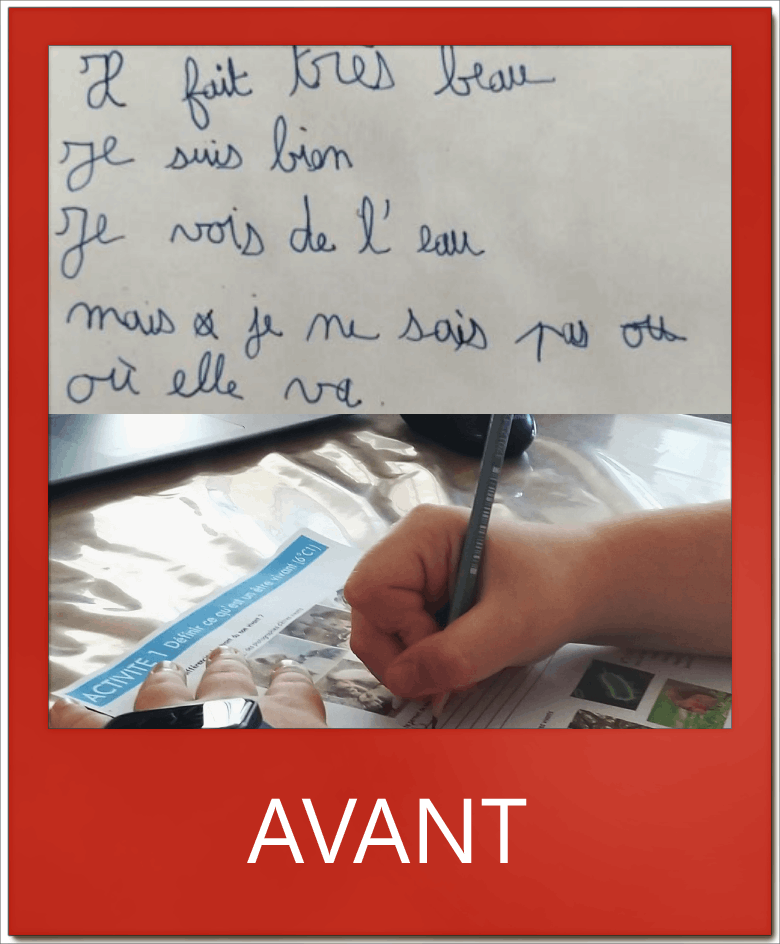 Il fait très beau
Je suis bien
Je vois de l'eau
mais je ne sais pas
où elle va.
ACTIVITE 1 Définir ce qu'est un être vivant (6°C1)
AVANT